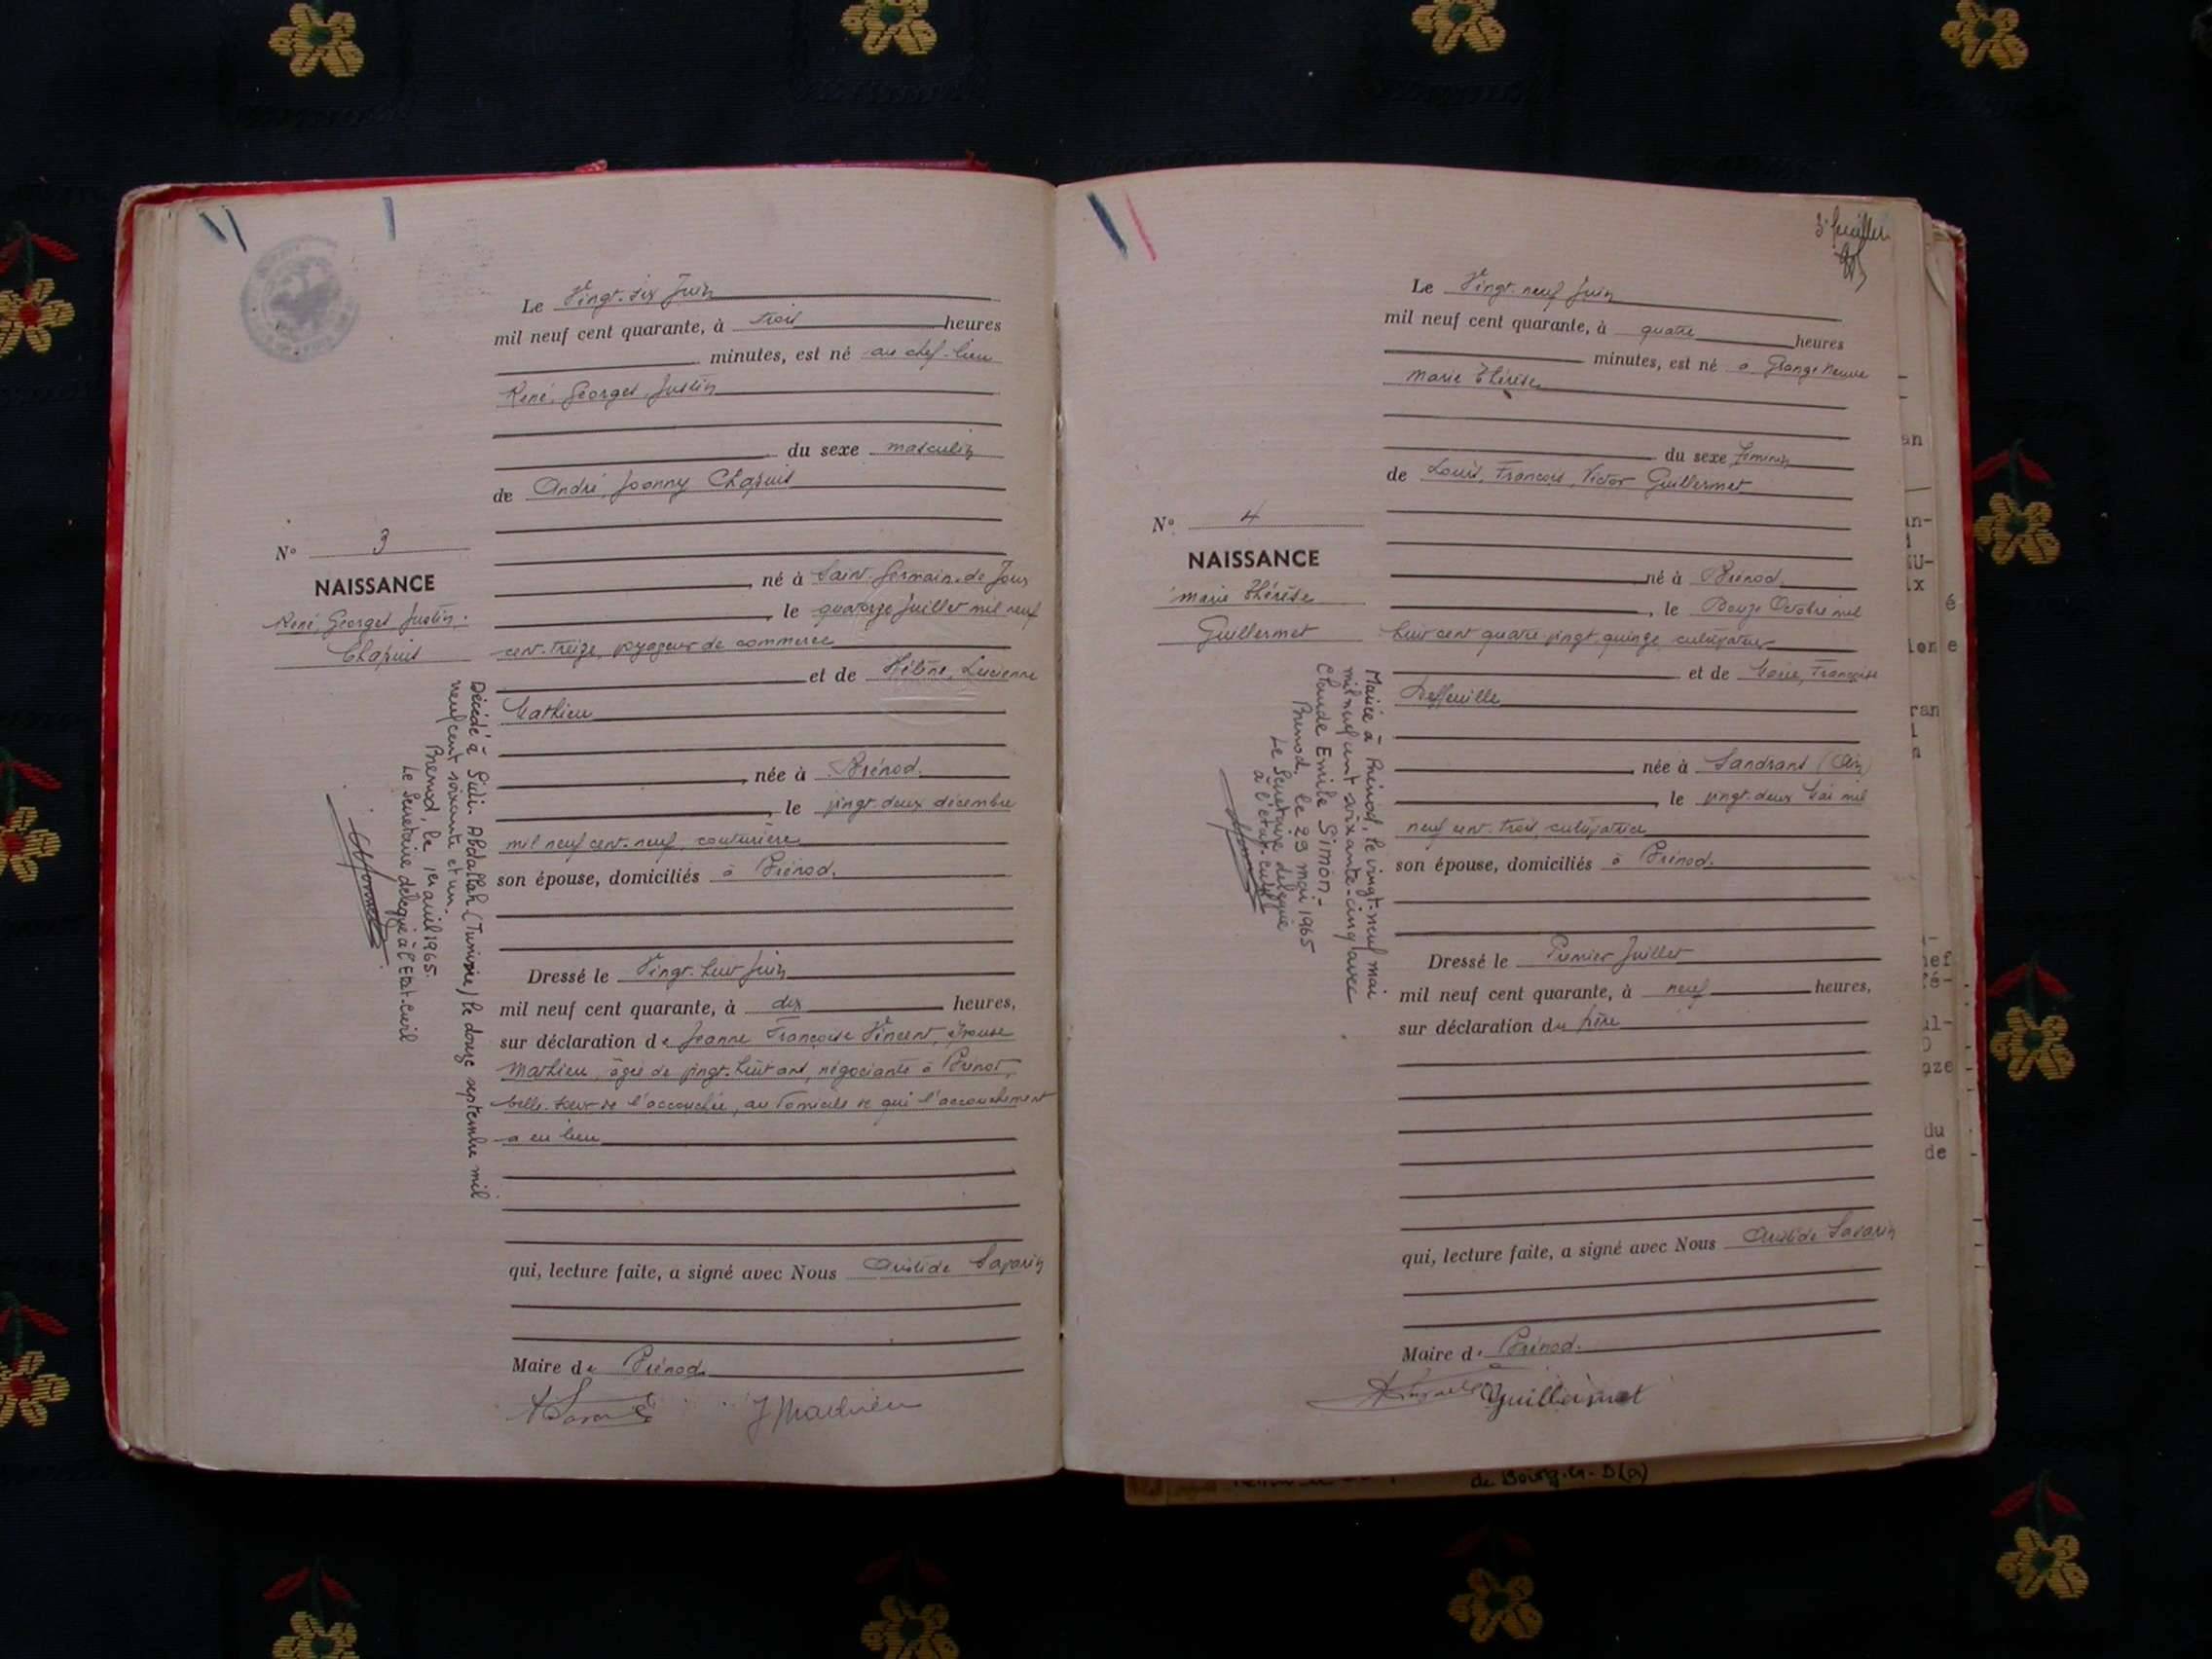 Le Vingt-six Juin
mil neuf cent quarante, à trois heures
minutes, est né au chef-lieu
René, Georges, Justin
du sexe masculin
de André, Joanny Chapuis
né à Saint-Germain-de-Joux
, le quatorze Juillet mil neuf
cent-treize, voyageur de commerce
et de Hélène, Lucienne
Mathieu
, née à Brénod.
, le vingt-deux décembre
mil neuf cent-neuf, couturière
son épouse, domiciliés à Brénod.
Dressé le Vingt-huit Juin
mil neuf cent quarante, à dix heures,
sur déclaration de Jeanne Françoise Vincent, épouse
Mathieu, âgée de vingt-huit ans, négociante à Brénod,
belle-sœur de l'accouchée, au domicile de qui l'accouchement
a eu lieu
qui, lecture faite, a signé avec Nous Aristide Savarin
Maire de Brénod
J Mathieu
N° 3
NAISSANCE
René, Georges Justin.
Chapuis
Décédé à Sidi-Abdallah (Tunisie) le douze septembre mil
neuf cent soixante et un.
Brenod, le 1er avril 1965.
Le Secrétaire délégué à l'Etat-Civil
3e feuillet
Le Vingt-neuf Juin
mil neuf cent quarante, à quatre heures
minutes, est né à Grange Neuve
Marie Thérèse
du sexe féminin
de Louis, François, Victor Guillermet
né à Brénod
, le Douze Octobre mil
huit cent quatre-vingt-quinze, cultivateur
et de Marie, Françoise
née à Sandrans (Ain)
, le vingt-deux Mai mil
neuf cent-trois, cultivatrice
son épouse, domiciliés à Brénod.
Dressé le Premier Juillet
mil neuf cent quarante, à neuf heures,
sur déclaration du père
qui, lecture faite, a signé avec Nous Aristide Savarin
Maire de Brénod.
Guillermet
N° 4
NAISSANCE
Marie Thérèse
Guillermet
Mariée à Brénod, le vingt-neuf mai
mil neuf cent soixante-cinq avec
Claude Emile Simon-
Brenod, le 29 mai 1965
Le Secrétaire délégué
à l'état-civil